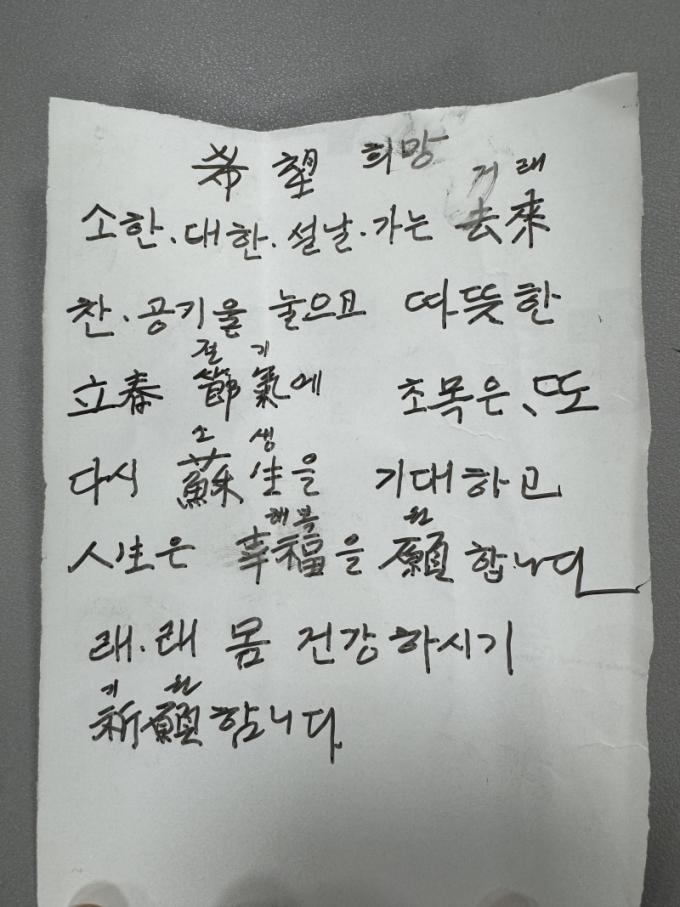 希望 희망
거래
소한.대한.설날.가는 去來
찬.공기을 눌으고 따뜻한
절기
立春 節氣에 초목은、또
소생
다시 蘇生을 기대하고
행복 원
人生은 幸福을 願합니다
래.래 몸 건강하시기
기원
祈願합니다.